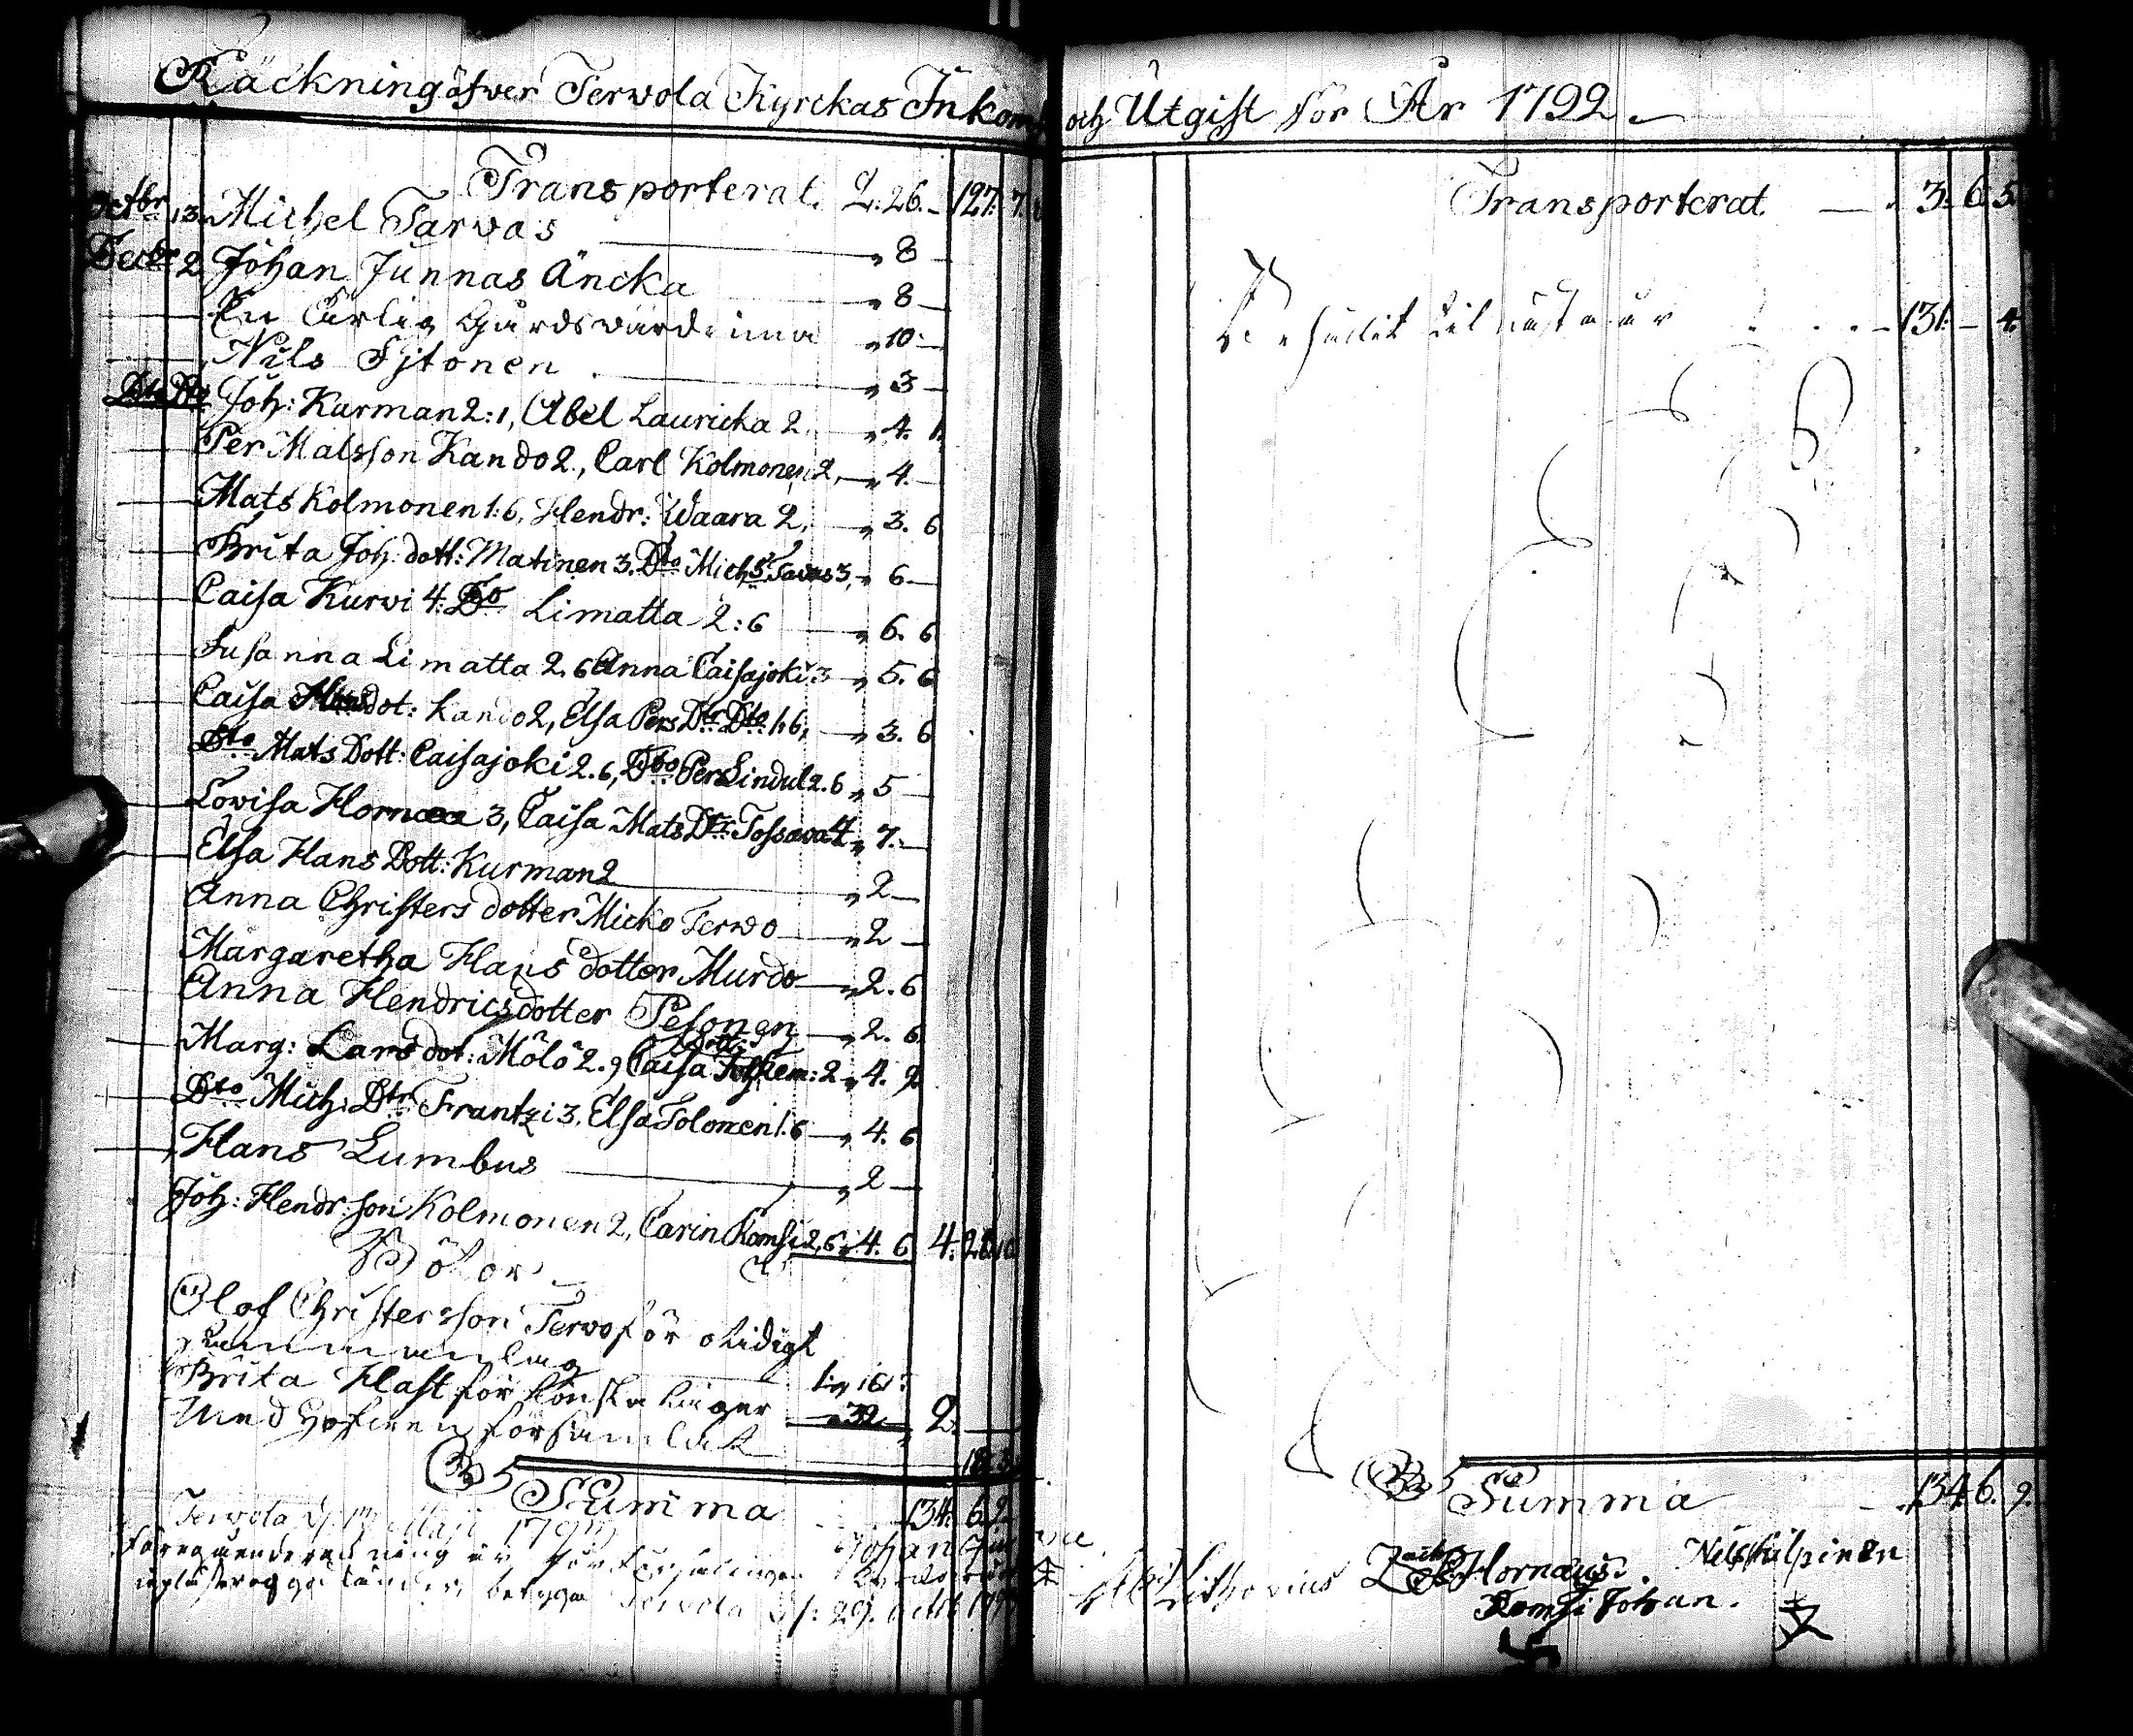 Räckning öfwer Terwola Kyrckas Inkomst och Utgift för År 1792.
Transporterat. 2. 26. 127: 7.
Octbr 13. Michel Tarvas 8
Decbr 2. Johan Junnas Äncka 8
En Ährlig Gårdswärdinna 10.
Nils Sjtonen 3
Dto Dto Joh: Kurman 2:1, Abel Lauricka 2. 4. 1.
Per Matsson Kando 2., Carl Kolmonen 2, 4.
Mats Kolmonen 1:6, Hendr: Waara 2, 3. 6
Brita Joh: dott: Matinen 3. Dto Mich: 3, 6
Caisa Kurvi 4. Dto Limatta 2:6 6. 6
Susanna Limatta 2. 6 Anna Caisajoki 3 5. 6
Caisa dot: Kando 2, Elsa Pers Dtr Dto 1.6, 3. 6
Dto Mats Dott: Caisajoki 2. 6, Dto Pers Lindul 2. 6 5
Lovisa Hornæa 3, Caisa Mats Dtr Tossava 4 7.
Elsa Hans Dott: Kurman 2 2
Anna Christers dotter Micko Terwo 2
Margaretha Hans dotter Murdo 2. 6
Anna Hendricsdotter Pesonen 2. 6
Marg: Lars dot: Mölö 2. 9 Caisa 2 4. 9
Dto Mich: Dtr Frantzi 3. Elsa Tolonen 1:6 4. 6
Hans Lumbus 2
Joh: Hendr:son Kolmonen 2, Carin Komsi 2,6 4. 6 4. 28. 10
Böter
Olof Christersson Tervo för otidigt
sammanlag 1. 16
Brita Hast för lönska läger 32 2.
Med Håfven församlat
Summa 134. 6. 9
Terwola
Johan
Transporterat. 3. 6. 5.
Behållit til nästa år 131. 4.
Summa 134. 6. 9.
Lithovius Zach: Hornæus. Nils Hilpinen
Komsi Johan.